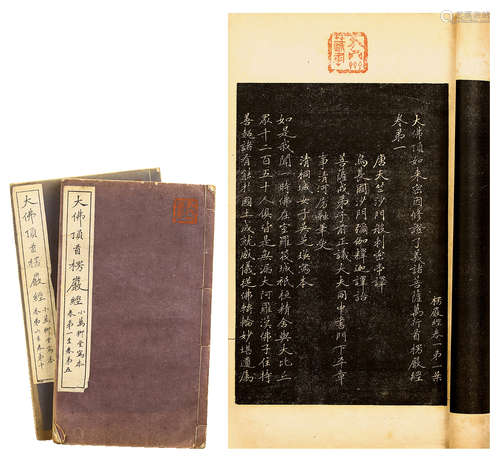 楞嚴經卷一第一葉
大佛頂如来密因修證了義諸菩薩萬行首楞嚴經
卷第一
唐天竺沙門般剌密帝譯
烏萇國沙門彌伽釋迦譯語
菩薩戒弟子前正議大夫同中書門下平章
事清河房融筆受
清桐城女子吳芝瑛寫本
如是我聞一時佛在室羅筏城祇桓精舍與大比丘
眾千二百五十人俱皆是無漏大阿羅漢佛子住持
善超諸有能於國土成就威儀從佛轉輪妙堪遺囑
大佛頂首楞嚴經
小萬柳堂寫本
卷第一至卷第五
大佛頂首楞嚴經
小萬柳堂寫本
卷第六至卷第十